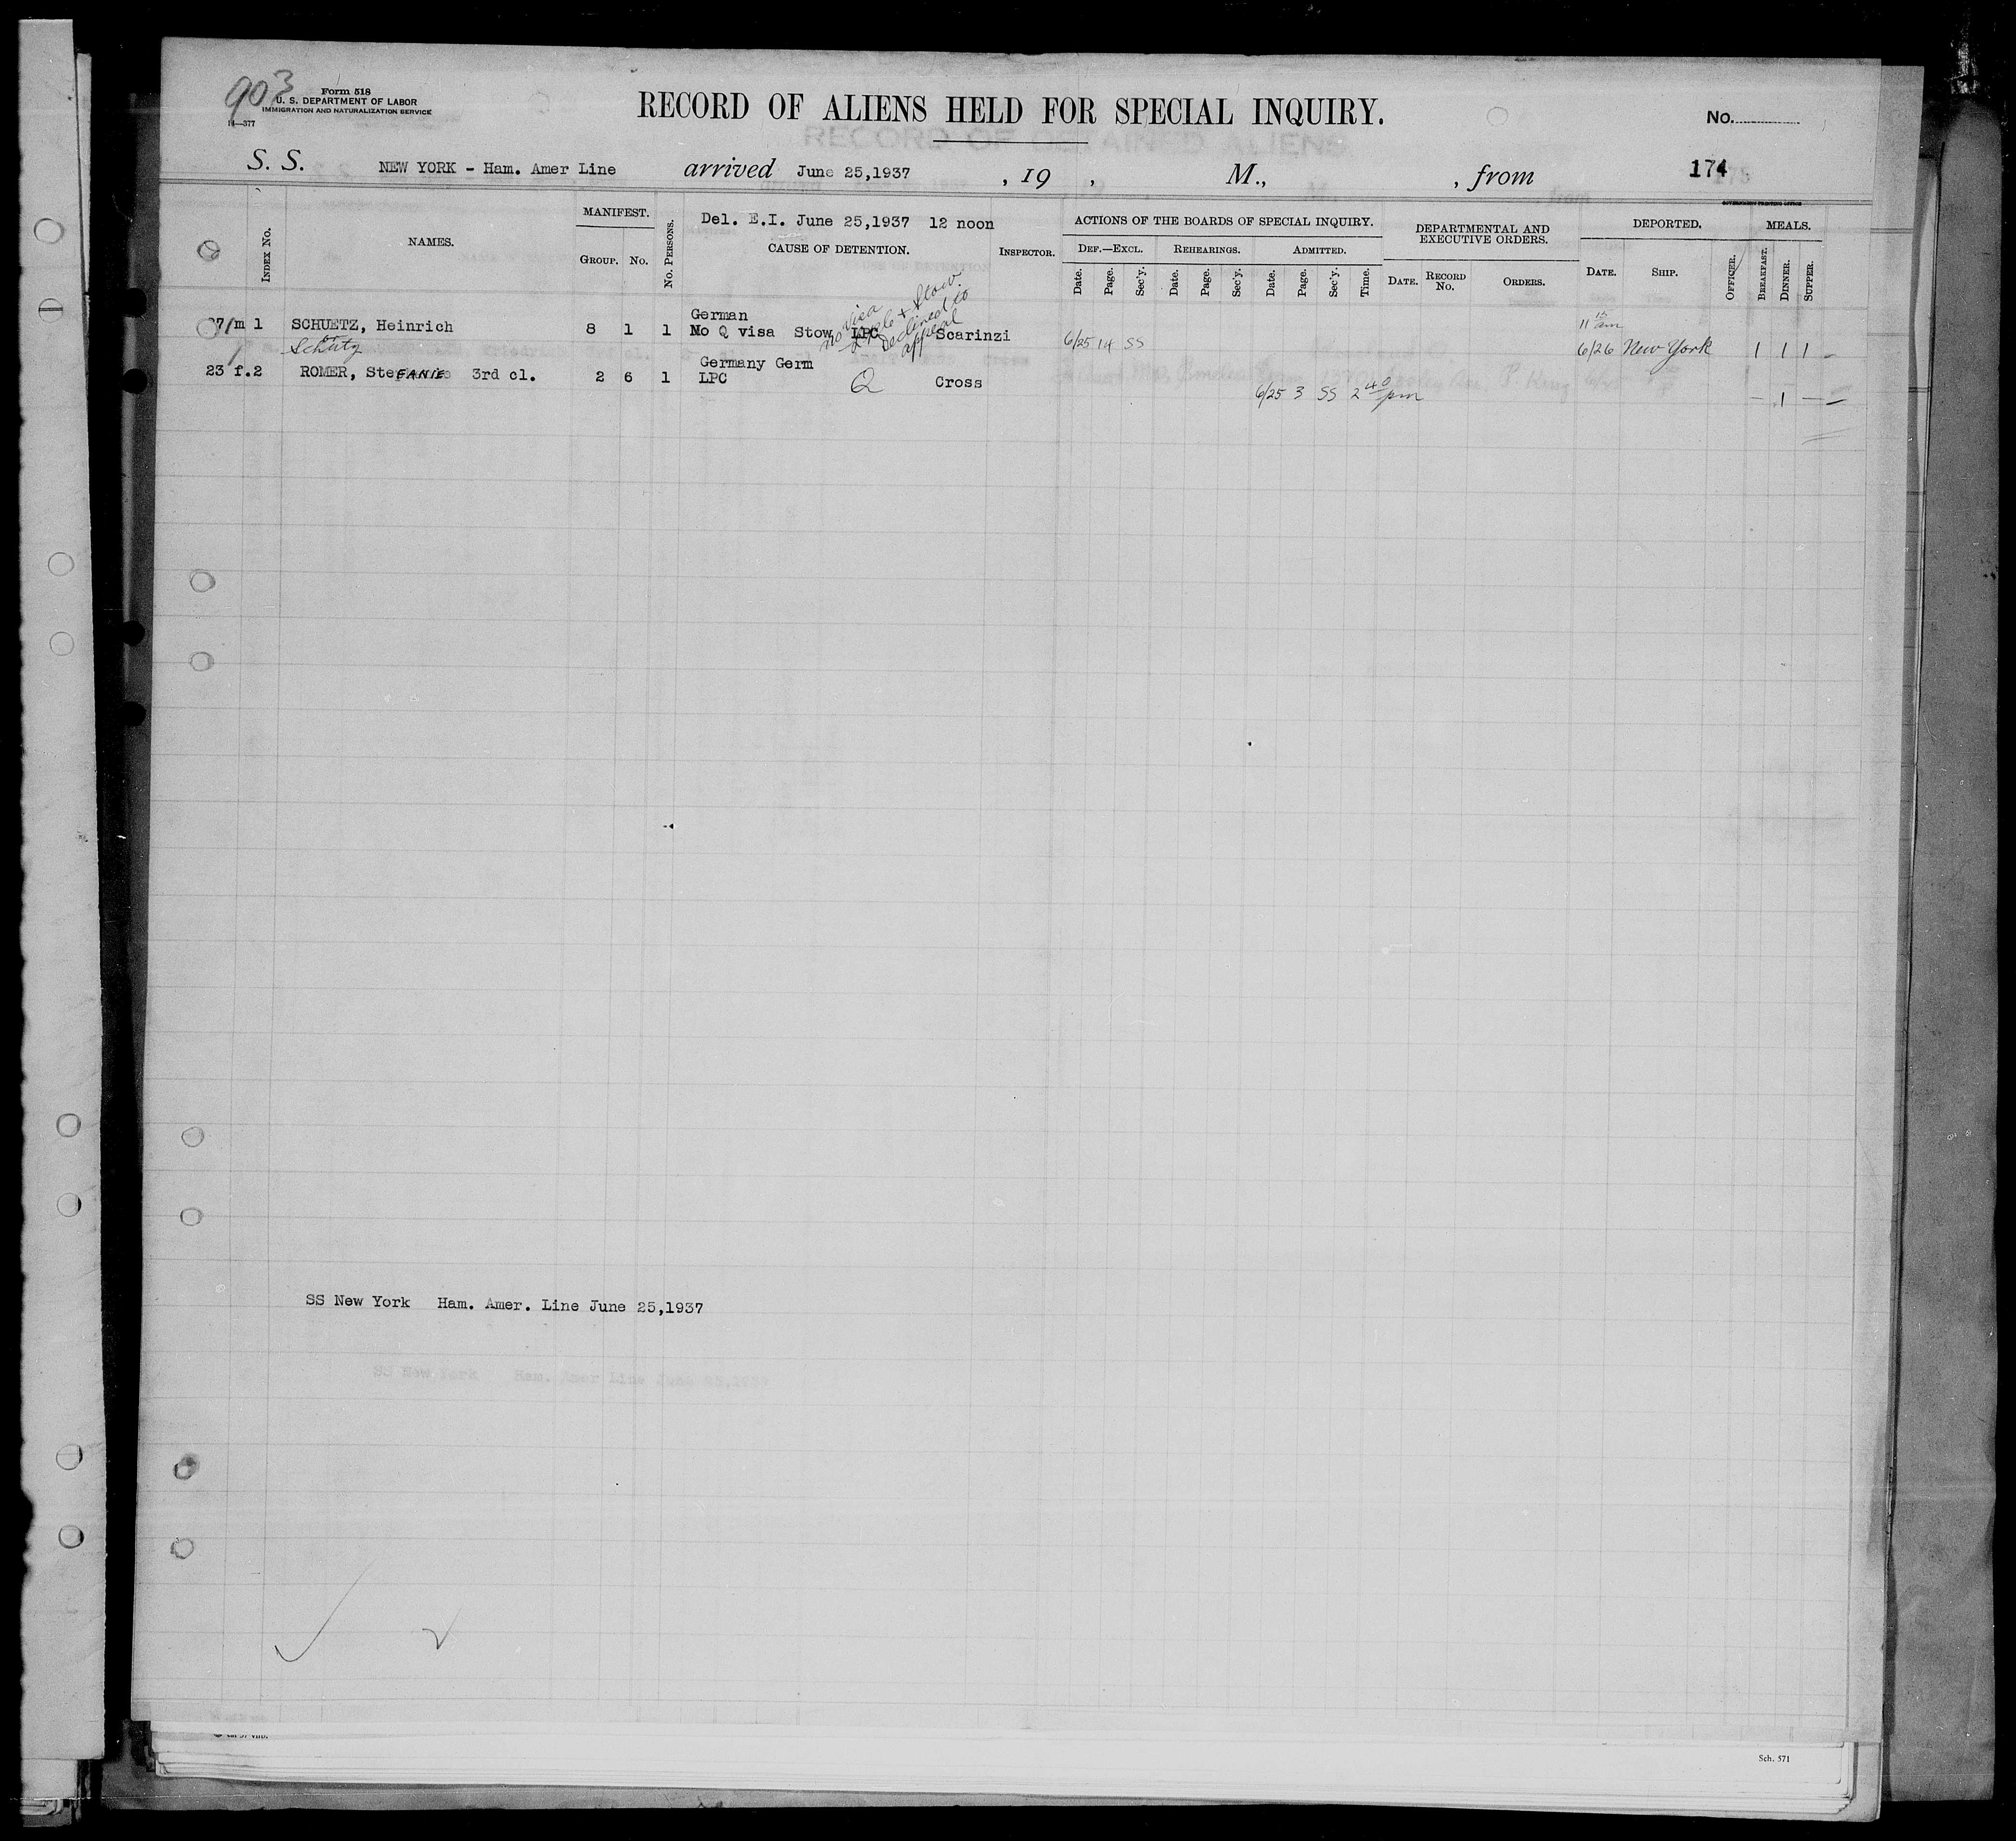 903
Form 518
U. S. DEPARTMENT OF LABOR
IMMIGRATION AND NATURALIZATION SERVICE
14—377
RECORD OF ALIENS HELD FOR SPECIAL INQUIRY.
No.
S. S. NEW YORK - Ham. Amer Line arrived June 25,1937 , 19 , M., , from 174
INDEX No. NAMES. MANIFEST. GROUP. No. No. PERSONS. Del. E.I. June 25,1937 12 noon CAUSE OF DETENTION. INSPECTOR. ACTIONS OF THE BOARDS OF SPECIAL INQUIRY. DEPARTMENTAL AND EXECUTIVE ORDERS. DEPORTED. MEALS.
DEF.—EXCL. REHEARINGS. ADMITTED.
Date. Page. Sec'y. Date. Page. Sec'y. Date. Page. Sec'y. Time. DATE. RECORD No. ORDERS. DATE. SHIP. OFFICER. BREAKFAST. DINNER. SUPPER.
no visa + Stow. Declined to appeal
German 11 15 am
m 1 SCHUETZ, Heinrich 8 1 1 No Q visa Stow LPC Scarinzi 6/25 14 SS 6/26 New York 1 1 1 -
or Schütz
Germany Germ
23 f.2 ROMER, SteFANIE 3rd cl. 2 6 1 LPC Q Cross 6/25 3 SS 2 40 pm - 1 -
SS New York Ham. Amer. Line June 25,1937
SS New York Ham. Amer Line June 25,1937
Sch. 571